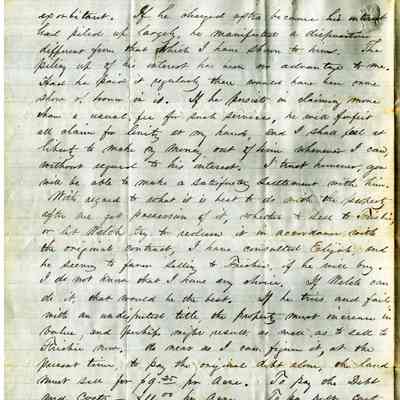 exorbitant. If he charged extra because his interest
had piled up largely, he manifests a disposition
different from that which I have shown to him. The
piling up of his interest has been no advantage to me.
Had he paid it regularly there would have been more
show & in it. If he persists in claiming more
than a usual fee for such services, he will forfeit
all claim for lenity at my hands, and I shall feel at
liberty to make my money out of him whenever I can,
without regard to his interest. I trust however, you
will be able to make a satisfactory settlement with him.
With regard to what it is best to do with the property
after we get possession of it, whether to sell to
or let Welch try to redeem it in accordance with
the original contract, I have consulted Elijah and
he seems to favor selling to if he will buy.
I do not know that I have any choice. If Welch can
do it, that would be the best. If he tries and fails
with an undisputed title the property must increase in
value, and perhaps might result as well as to sell to
now. As near as I can figure it, at the
present time, to pay the original debt alone, the land
must sell for $9.25 per Acre. To pay the Debt
and Costs - 00 per Acre. To pay both